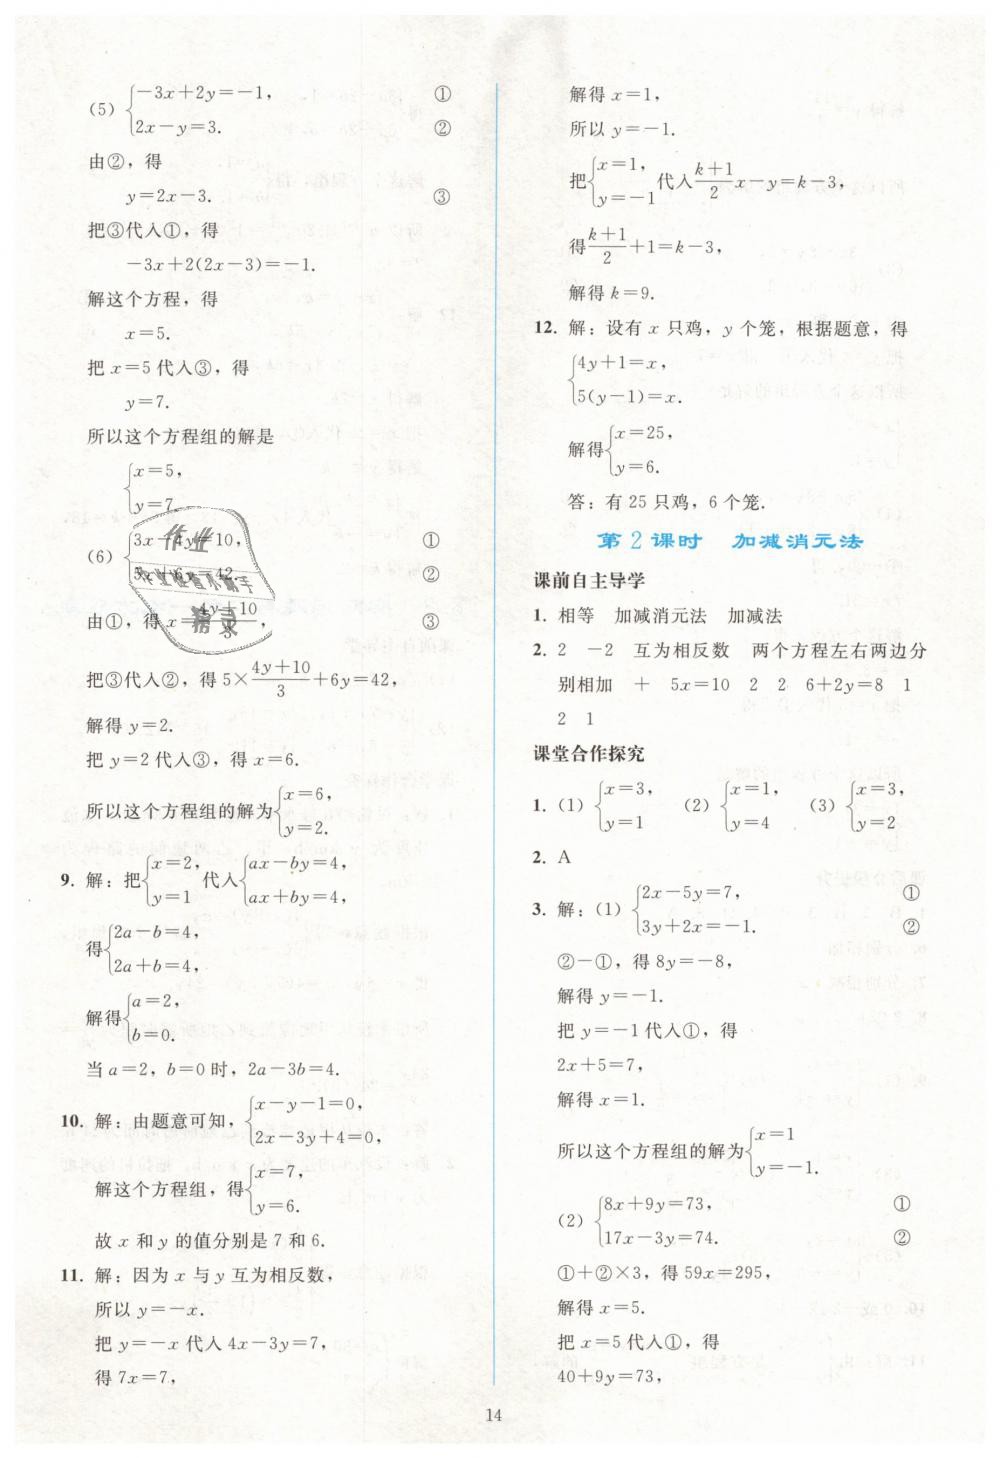 (5) {−3x+2y=−1, ①
2x−y=3. ②
由②，得
y=2x−3. ③
把③代入①，得
−3x+2(2x−3)=−1.
解这个方程，得
x=5.
把 x=5 代入③，得
y=7.
所以这个方程组的解是
{x=5,
y=7.
(6) {3x−4y=10, ①
5x+6y=42. ②
由①，得 x=(4y+10)/3, ③
把③代入②，得 5×(4y+10)/3+6y=42,
解得 y=2.
把 y=2 代入③，得 x=6.
所以这个方程组的解为{x=6,
y=2.
9. 解：把{x=2, y=1 代入{ax−by=4, ax+by=4,
得{2a−b=4,
2a+b=4,
解得{a=2,
b=0.
当 a=2，b=0 时，2a−3b=4.
10. 解：由题意可知，{x−y−1=0,
2x−3y+4=0,
解这个方程组，得{x=7,
y=6.
故 x 和 y 的值分别是 7 和 6.
11. 解：因为 x 与 y 互为相反数，
所以 y=−x.
把 y=−x 代入 4x−3y=7,
得 7x=7,
解得 x=1,
所以 y=−1.
把{x=1, y=−1 代入(k+1)/2 x−y=k−3,
得(k+1)/2+1=k−3,
解得 k=9.
12. 解：设有 x 只鸡，y 个笼，根据题意，得
{4y+1=x,
5(y−1)=x.
解得{x=25,
y=6.
答：有 25 只鸡，6 个笼.
第 2 课时 加减消元法
课前自主导学
1. 相等 加减消元法 加减法
2. 2 −2 互为相反数 两个方程左右两边分
别相加 + 5x=10 2 2 6+2y=8 1
2 1
课堂合作探究
1. (1) {x=3, y=1 (2) {x=1, y=4 (3) {x=3, y=2
2. A
3. 解：(1) {2x−5y=7, ①
3y+2x=−1. ②
②−①，得 8y=−8,
解得 y=−1.
把 y=−1 代入①，得
2x+5=7,
解得 x=1.
所以这个方程组的解为{x=1
y=−1.
(2) {8x+9y=73, ①
17x−3y=74. ②
①+②×3，得 59x=295,
解得 x=5.
把 x=5 代入①，得
40+9y=73,
14
作业
精灵